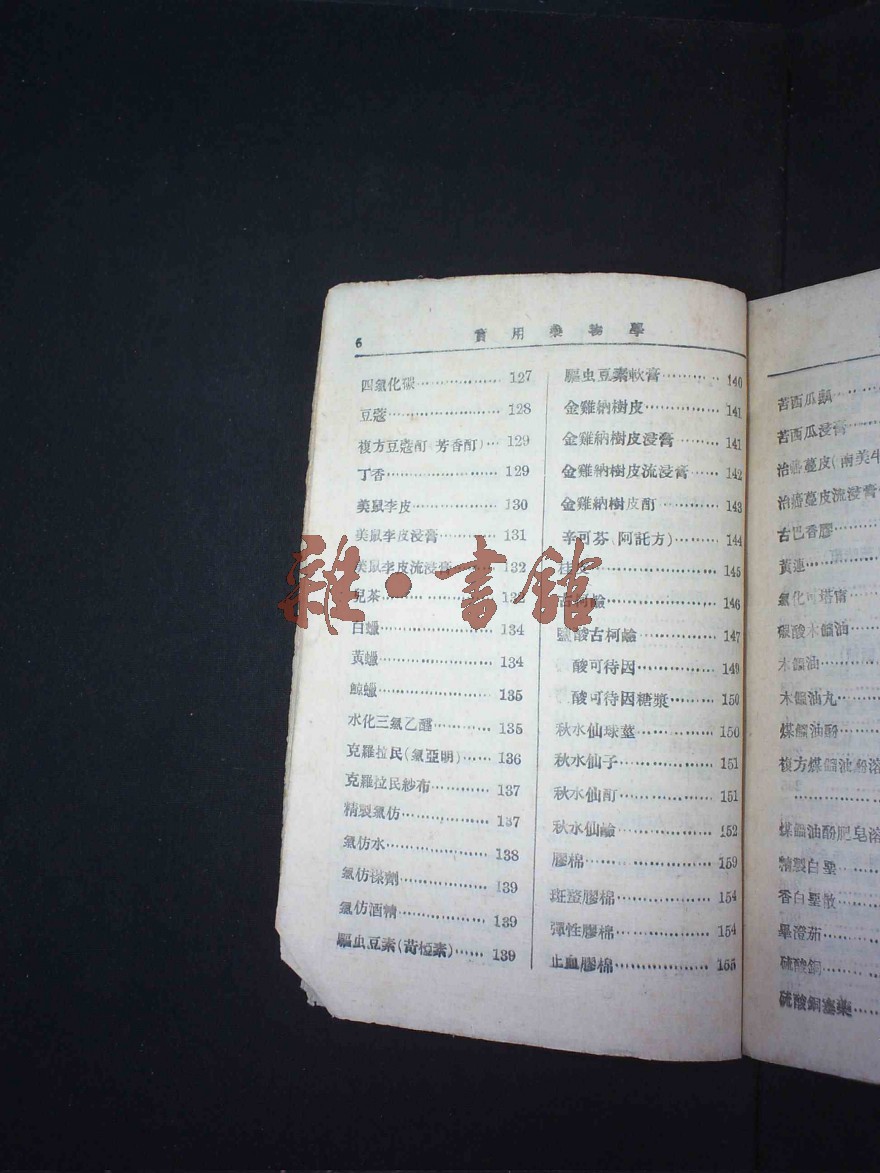 6
實用藥物學
四氯化碳 127
豆蔻 128
複方豆蔻酊 芳香酊) 129
丁香 129
美鼠李皮 130
美鼠李皮浸膏 131
美鼠李皮流浸膏 132
兒茶
白蠟 134
黃蠟 134
鯨蠟 135
水化三氯乙醛 135
克羅拉民(氯亞明) 136
克羅拉民紗布 137
精製氯仿 137
氯仿水 138
氯仿搽劑 139
氯仿酒精 139
驅虫豆素(苛椏素) 139
驅虫豆素軟膏 140
金雞納樹皮 141
金雞納樹皮浸膏 141
金雞納樹皮流浸膏 142
金雞納樹皮酊 143
辛可芬(阿託方) 144
145
古柯鹼 146
鹽酸古柯鹼 147
酸可待因 149
酸可待因糖漿 150
秋水仙球莖 150
秋水仙子 151
秋水仙酊 151
秋水仙鹼 152
膠棉 159
斑蝥膠棉 154
彈性膠棉 154
止血膠棉 155
雜·書館
苦西瓜瓤
苦西瓜浸膏
治癌蔓皮(南美牛
治癌蔓皮流浸膏
古巴香膠
黃連
氯化可塔甯
碳酸木餾油
木餾油
木餾油丸
煤餾油酚
複方煤餾油酚溶
煤餾油酚肥皂溶
精製白堊
香白堊散
蓽澄茄
硫酸銅
硫酸銅塞藥